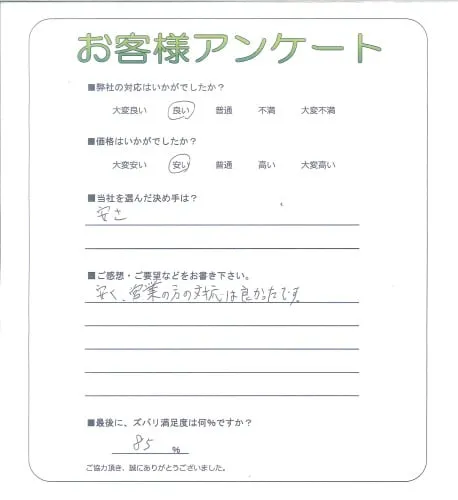 お客様アンケート
■弊社の対応はいかがでしたか？
大変良い 良い 普通 不満 大変不満
■価格はいかがでしたか？
大変安い 安い 普通 高い 大変高い
■当社を選んだ決め手は？
安さ
■ご感想・ご要望などをお書き下さい。
安く、営業の方の対応は良かったです。
■最後に、ズバリ満足度は何％ですか？
85 ％
ご協力頂き、誠にありがとうございました。